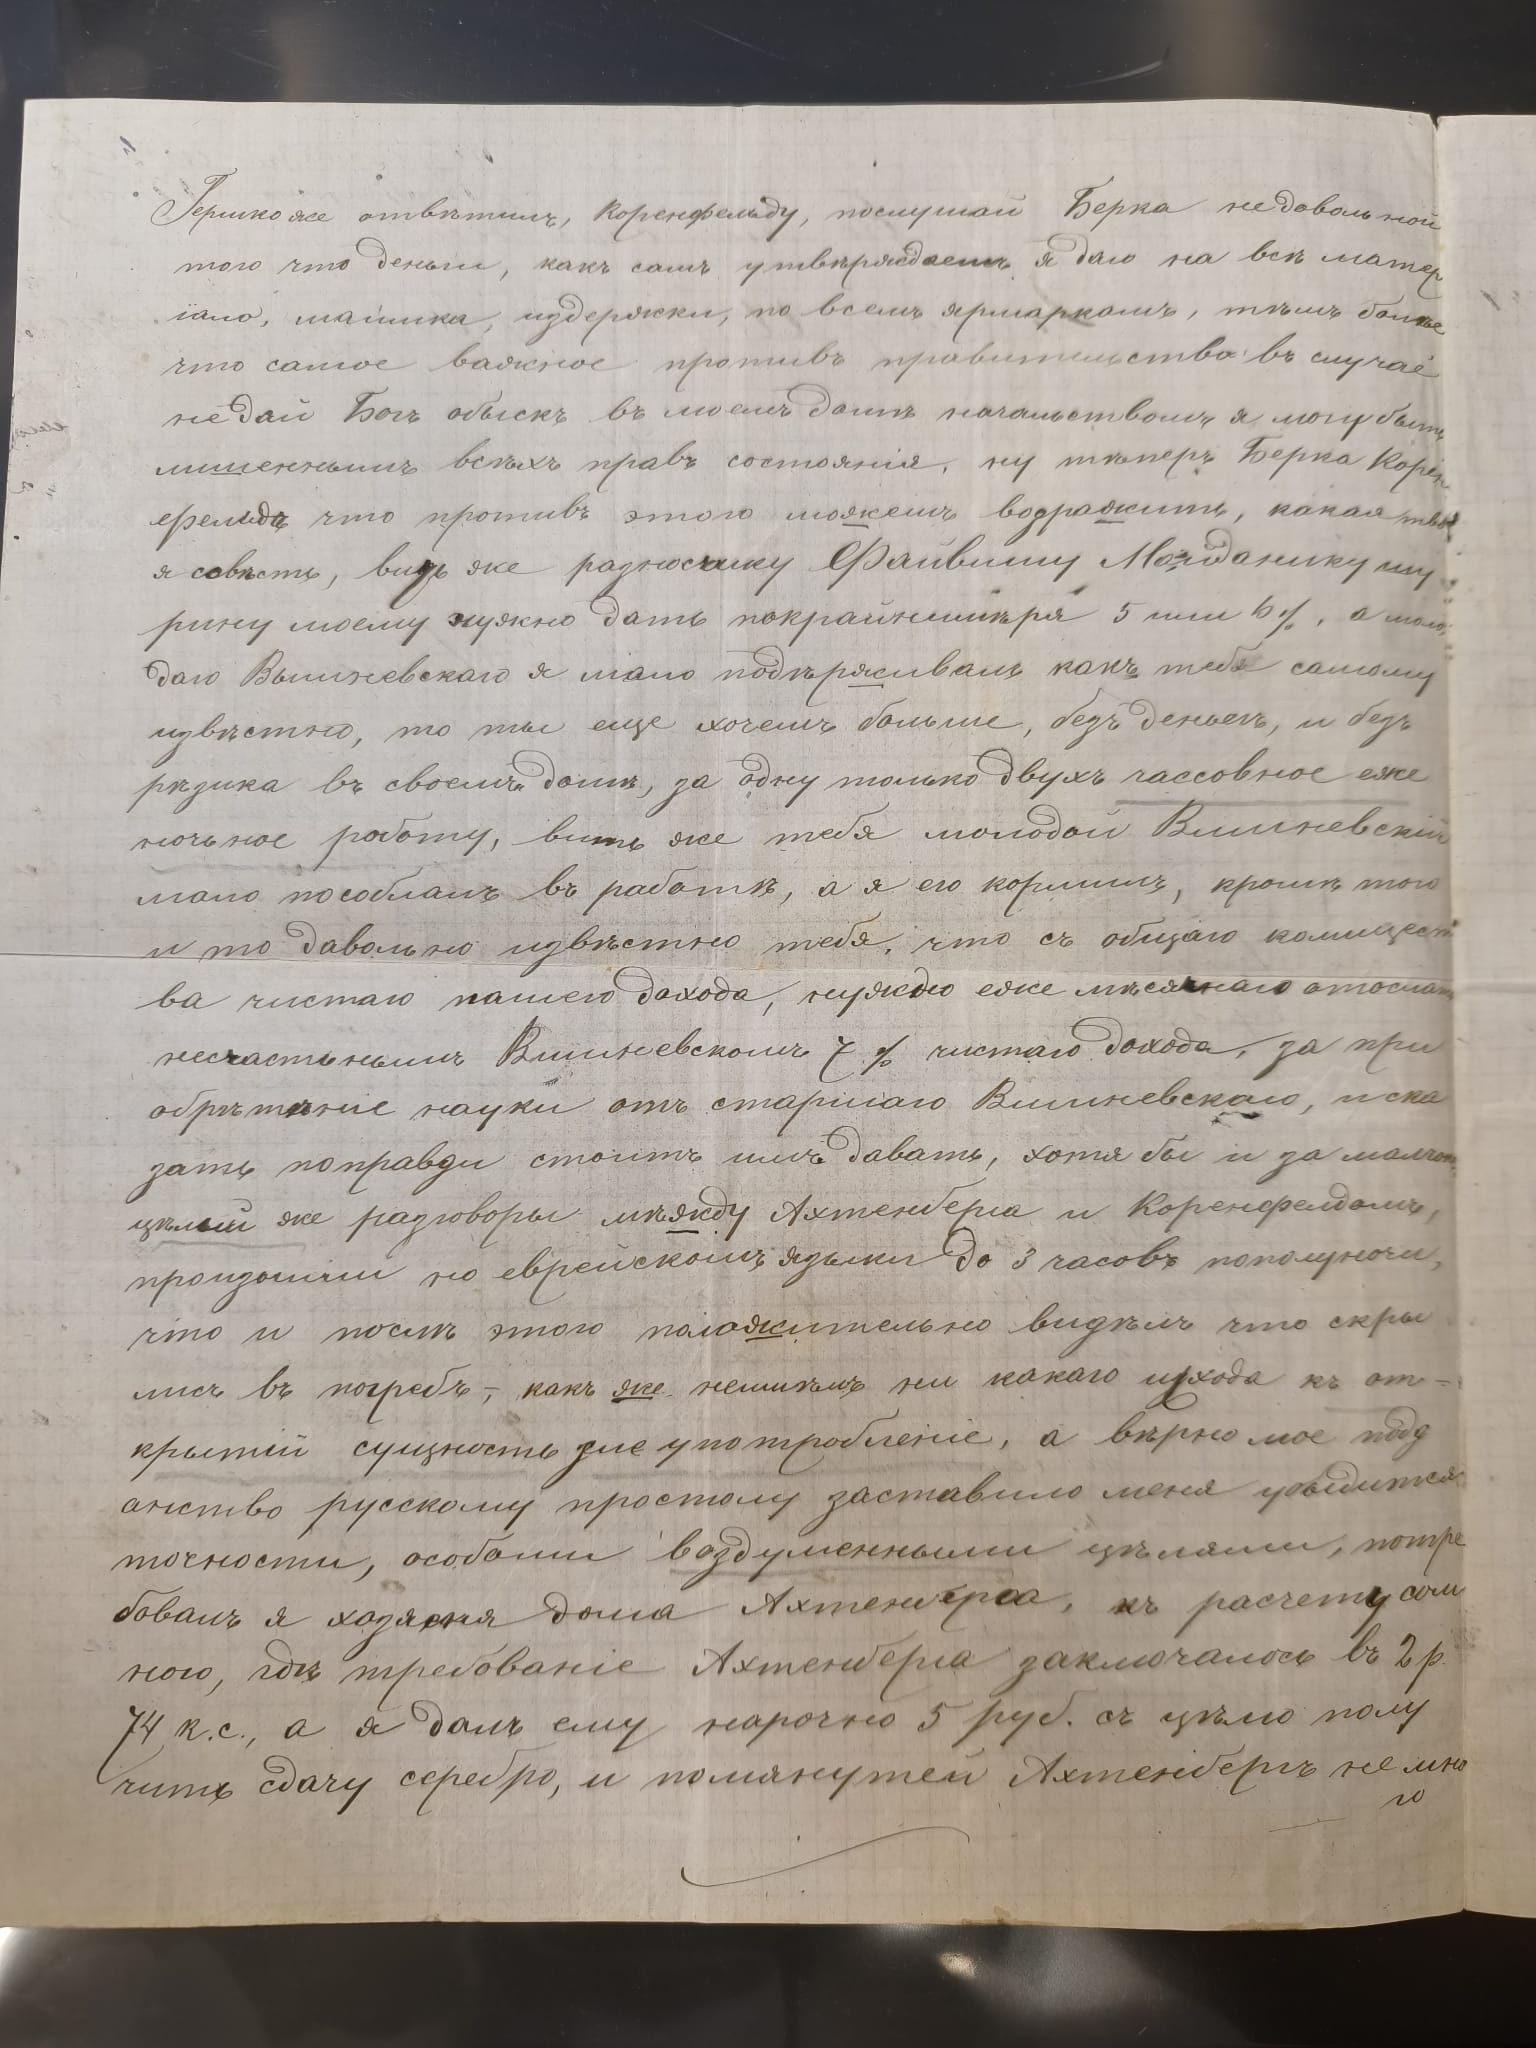 Гершко же отвѣтилъ, Коренфельду, послушай Берка не довольной
того что деньги, какъ самъ утвѣрждаешъ я даю на всѣ матер
іало, машика, издержки, по всемъ ярмаркамъ, тѣмъ болѣе
что самое важное противъ правительства въ случаѣ
не дай Богъ обыскъ въ моемъ домѣ начальствомъ я могу быть
лишеннымъ всѣхъ правъ состоянія, ну тѣперъ Берка Корен
фельдъ что противъ этого можешъ возражить, какая тво
я совѣсть, видь же разносчику Файвишу Майданику шу
рину моему нужно дать покрайнимѣря 5 или 6%, а моло
даго Вышневскаго я мало подѣрживалъ какъ тебя самому
извѣстно, то ты еще хочешъ больше, безъ деньегъ, и безъ
рѣзика въ своемъ домѣ, за одну только двухъ чассовное еже
ночьное роботу, вить же тебя молодой Вишневскій
мало пособлалъ въ работѣ, а я его кормилъ, кромѣ того
и то давольно извѣстно тебя, что съ общаго количест
ва чистаго нашего дохода, нуждно еже мѣсячнаго отослать
несчастьнымъ Вишневскомъ 7% чистаго дохода, за при
обрѣтѣніе науки отъ старшаго Вишневскаго, и ска
зать поправди стоитъ имъ давать, хотя бы и за малчон
цѣлый же разговоры мѣжду Ахтенберга и Коренфелдомъ,
произошли но еврейскомъ языки до 3 часовъ пополуночи,
что и послѣ этого положительно видѣлъ что скры
лисъ въ погребъ, какъ же неимѣлъ ни какаго исхода къ от-
крытій сущность зле употробленіе, а вѣрно мое подд
анство русскому простолу заставило меня убѣдится
точности, особоми воздуменными цѣлями, потре
бовалъ я хозяеня дома Ахтенберга, къ расчету сом
ною, гдѣ требованіе Ахтенберга заключалось въ 2 р.
74 к.с., а я далъ ему нарочно 5 руб. съ цѣлю полу
чить сдачу серебро, и помянутей Ахтенбергъ не мно
го